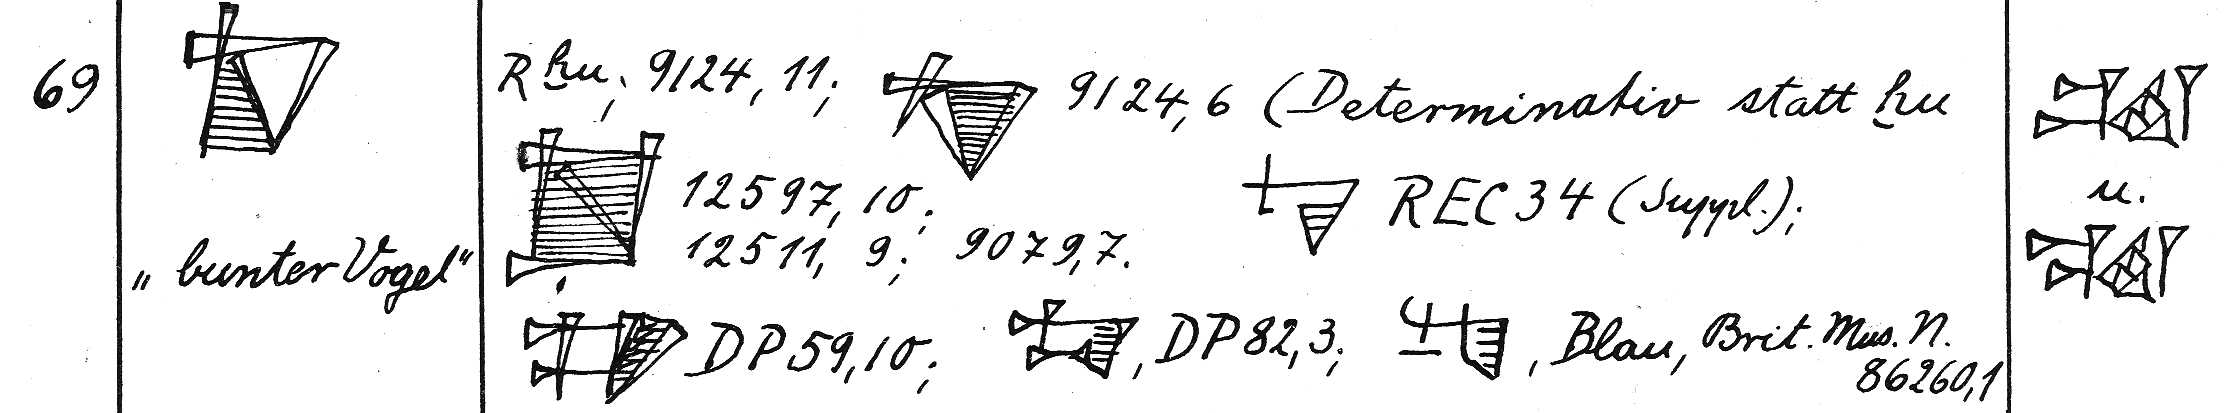 69
„bunter Vogel“
R ḫu, 9124, 11; 9124, 6 (Determinativ statt ḫu
12597, 10; REC 34 (Suppl.);
12511, 9; 9079, 7.
DP 59, 10; , DP 82, 3; , Blau, Brit. Mus. N.
86260, 1
u.